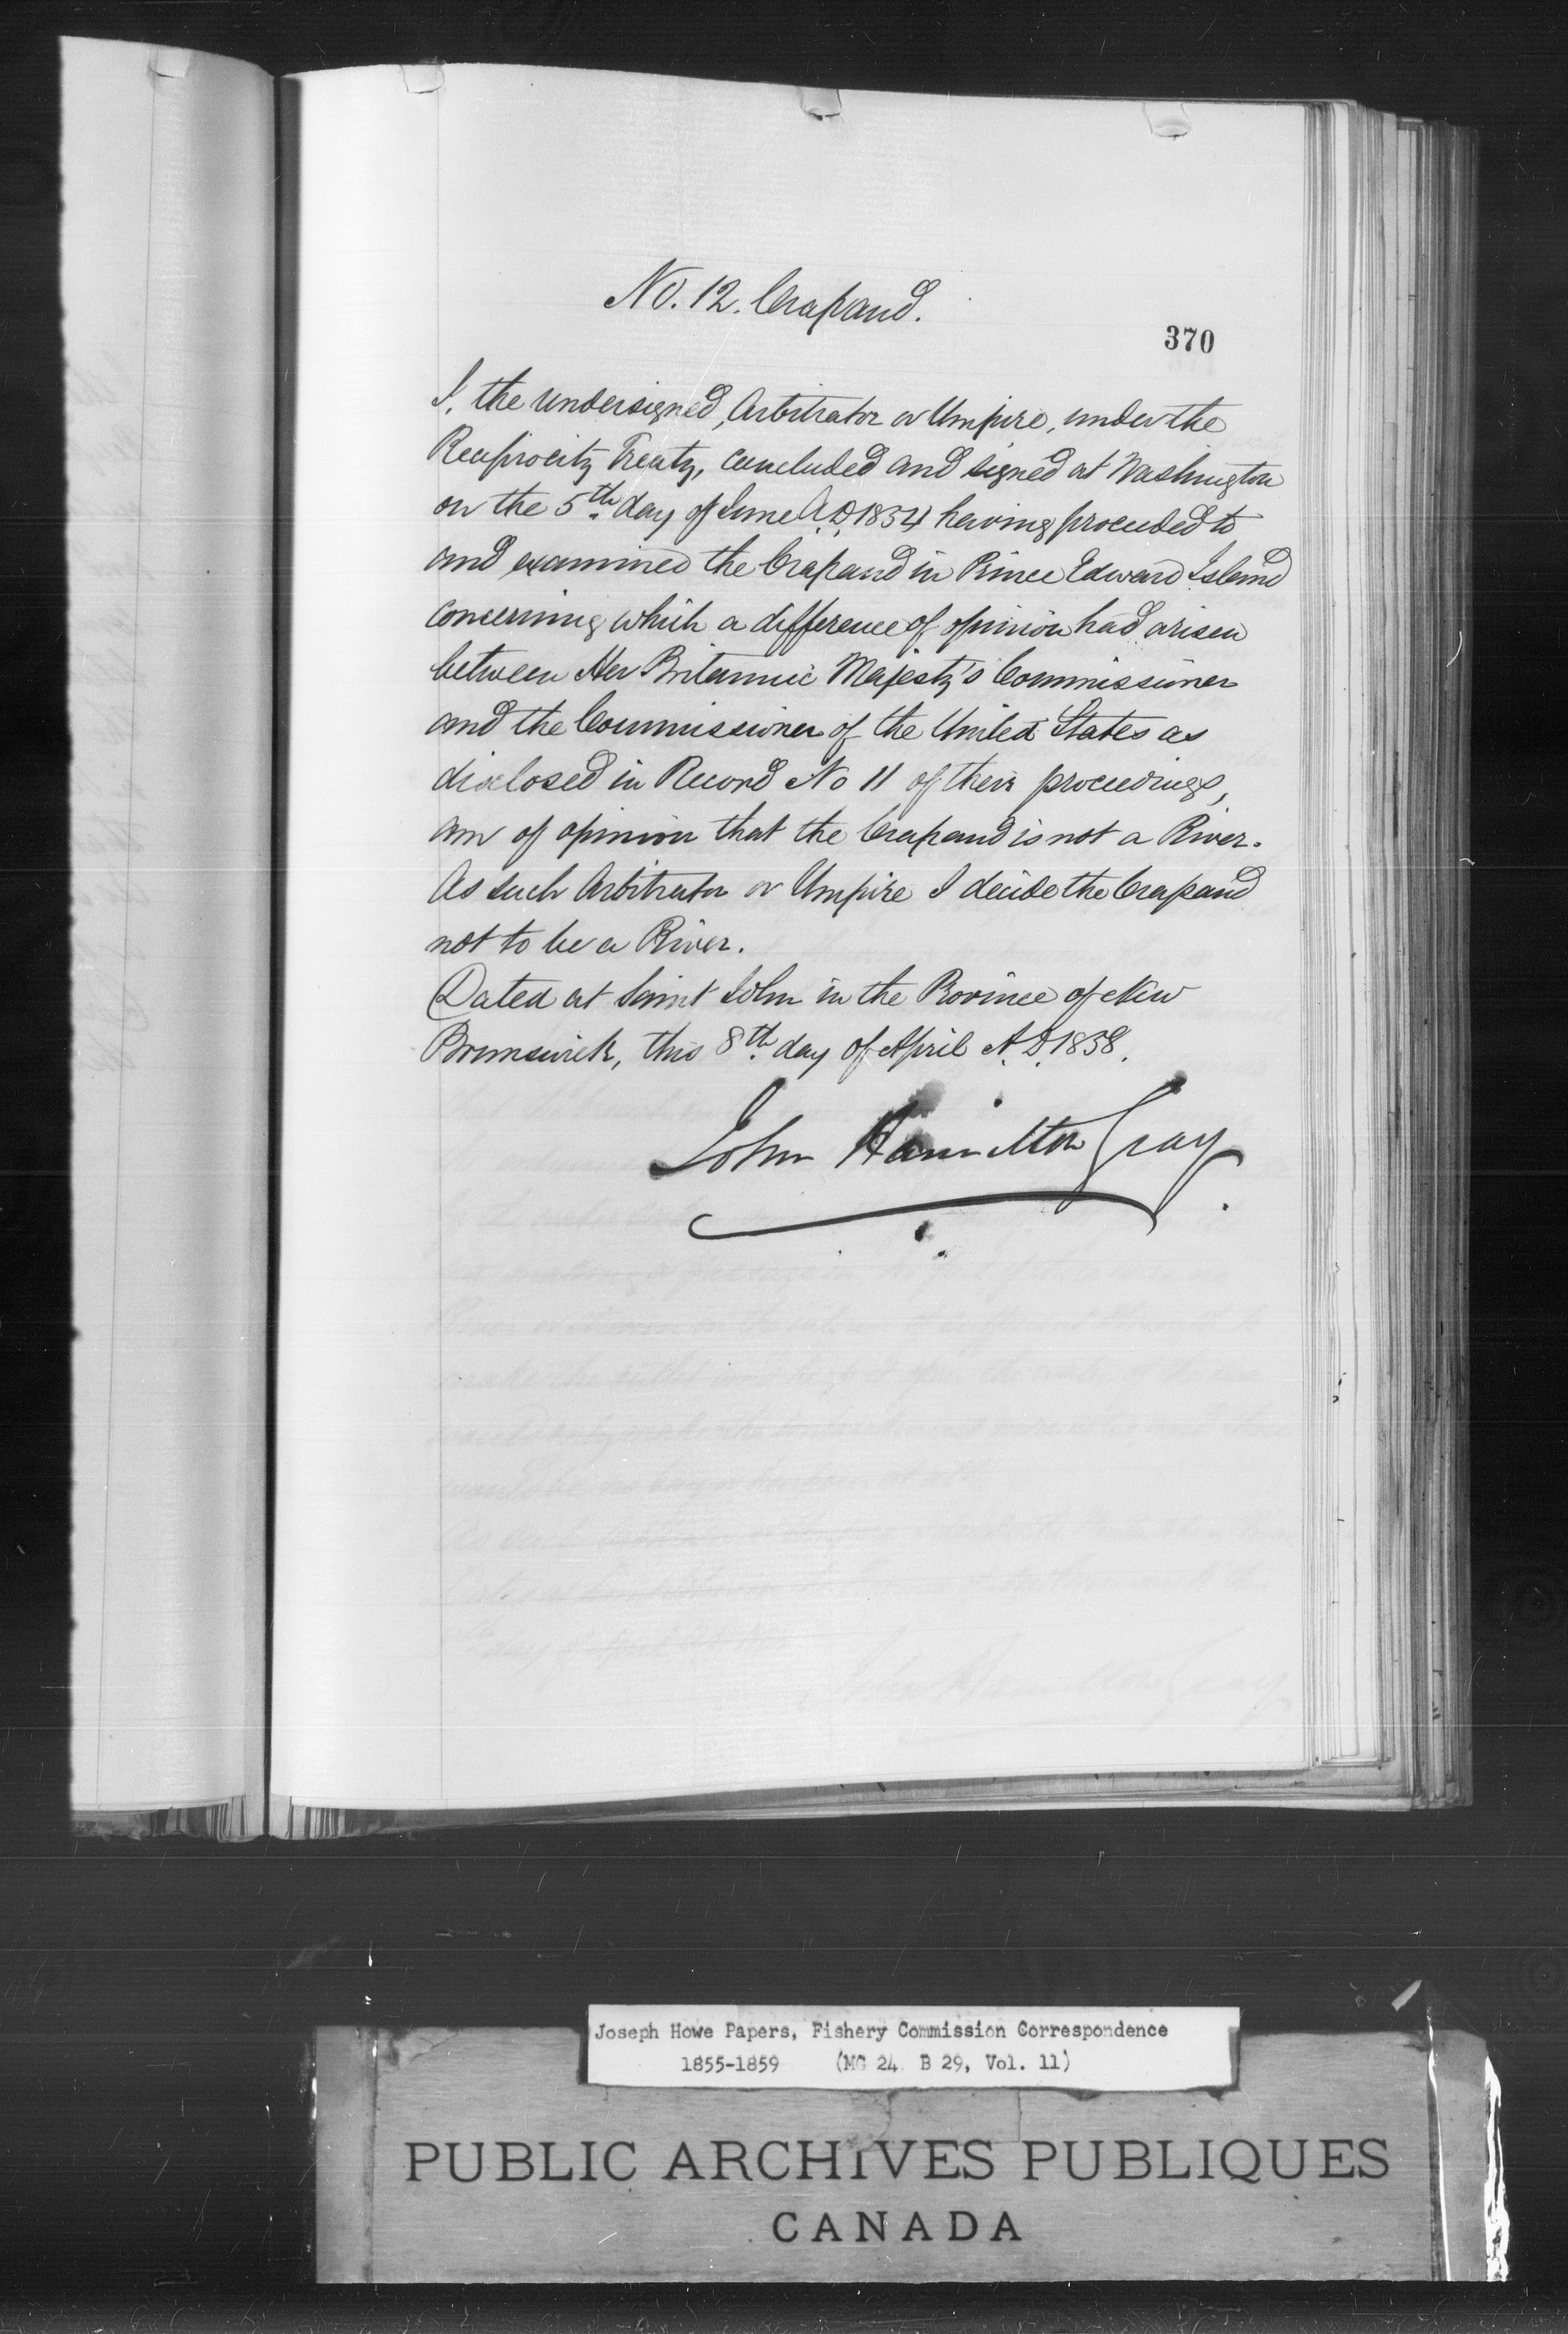 No. 12. Crapaud.
370
I, the undersigned, Arbitrator or Umpire, under the
Reciprocity Treaty, concluded and signed at Washington
on the 5th day of June A.D. 1854 having proceeded to
and examined the Crapaud in Prince Edward Island
concerning which a difference of opinion had arisen
between Her Britannic Majesty's Commissioner
and the Commissioner of the United States as
disclosed in Record No 11 of their proceedings,
am of opinion that the Crapaud is not a River.
As such Arbitrator or Umpire I decide the Crapaud
not to be a River.
Dated at Saint John in the Province of New
Brunswick, this 8th day of April A.D. 1858.
John Hamilton Gray.
Joseph Howe Papers, Fishery Commission Correspondence
1855-1859 (MG 24 B 29, Vol. 11)
PUBLIC ARCHIVES PUBLIQUES
CANADA